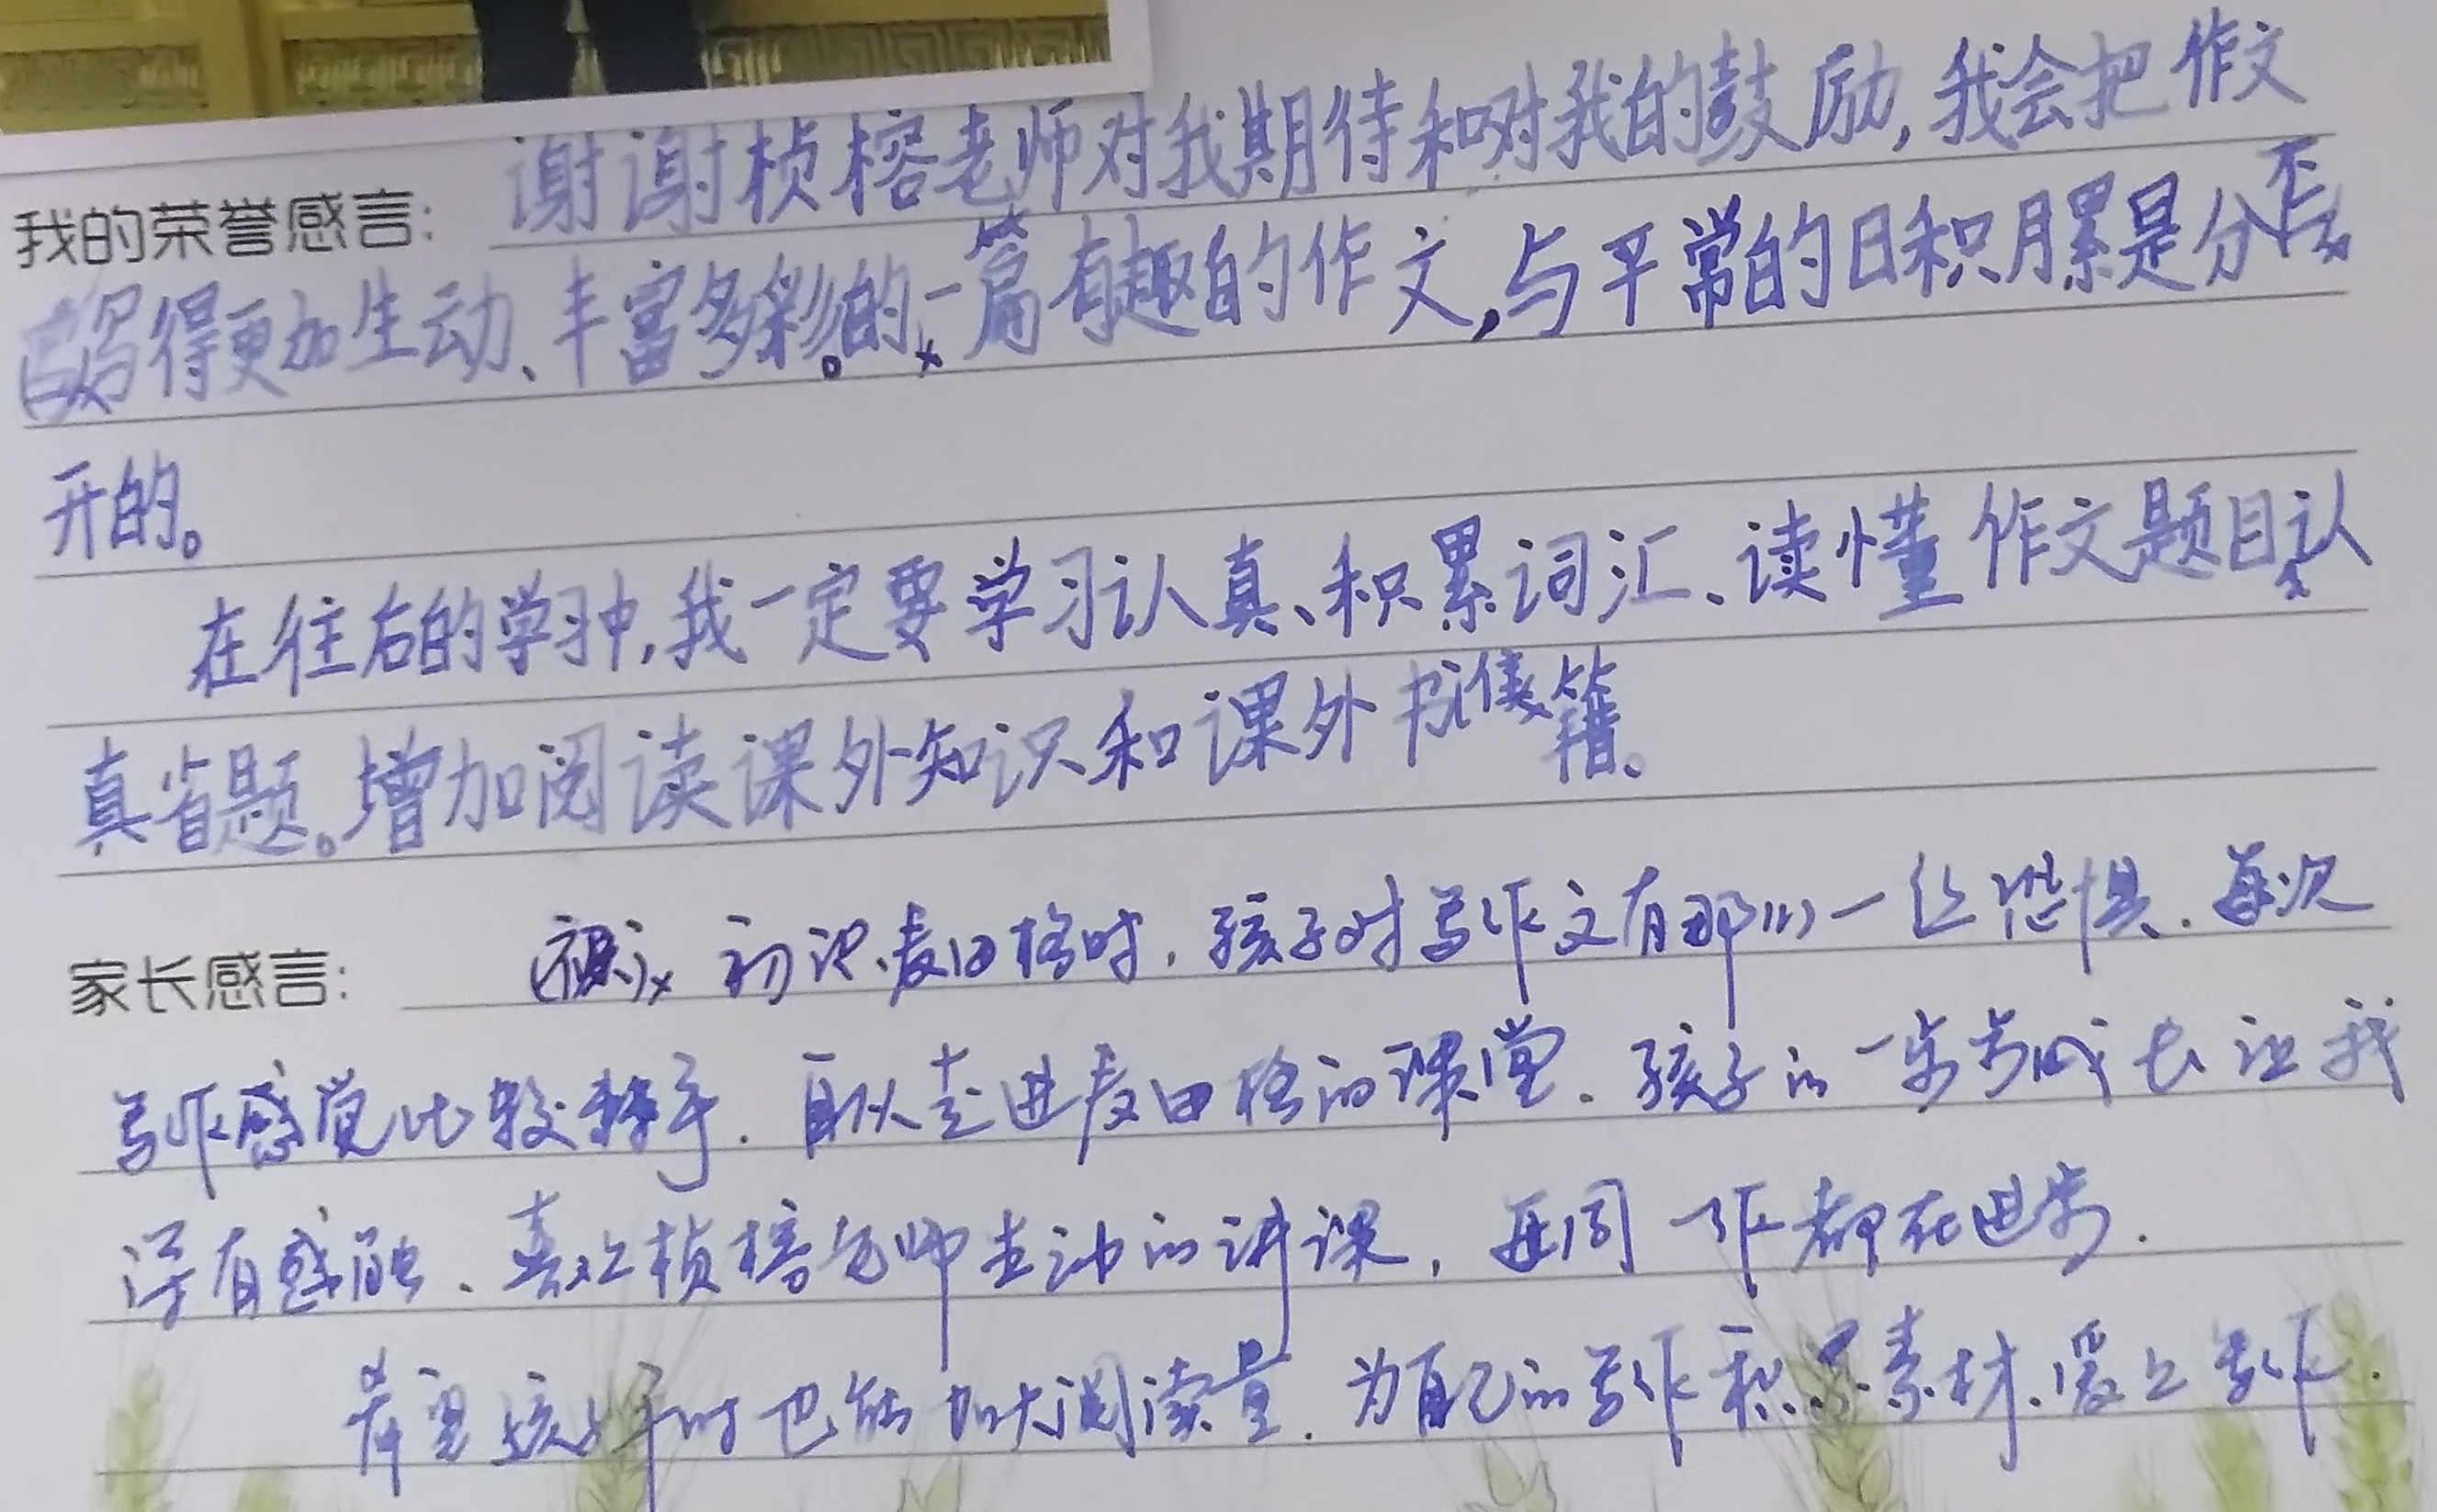 我的荣誉感言: 谢谢桢榕老师对我期待和对我的鼓励,我会把作文
写得更加生动、丰富多彩。的,一篇有趣的作文,与平常的日积月累是分不
开的。
在往后的学习中,我一定要学习认真、积累词汇、读懂作文题目认
真省题。增加阅读课外知识和课外书籍。
家长感言: 初识麦田格时,孩子对写作文有那么一丝恐惧.每次
写作感觉比较棘手.自从走进麦田格的课堂.孩子的一步步成长让我
深有感触、喜欢上桢榕老师生动的讲课,每周一作都在进步.
希望孩子平时也能加大阅读量.为自己的写作积累素材.爱上写作.